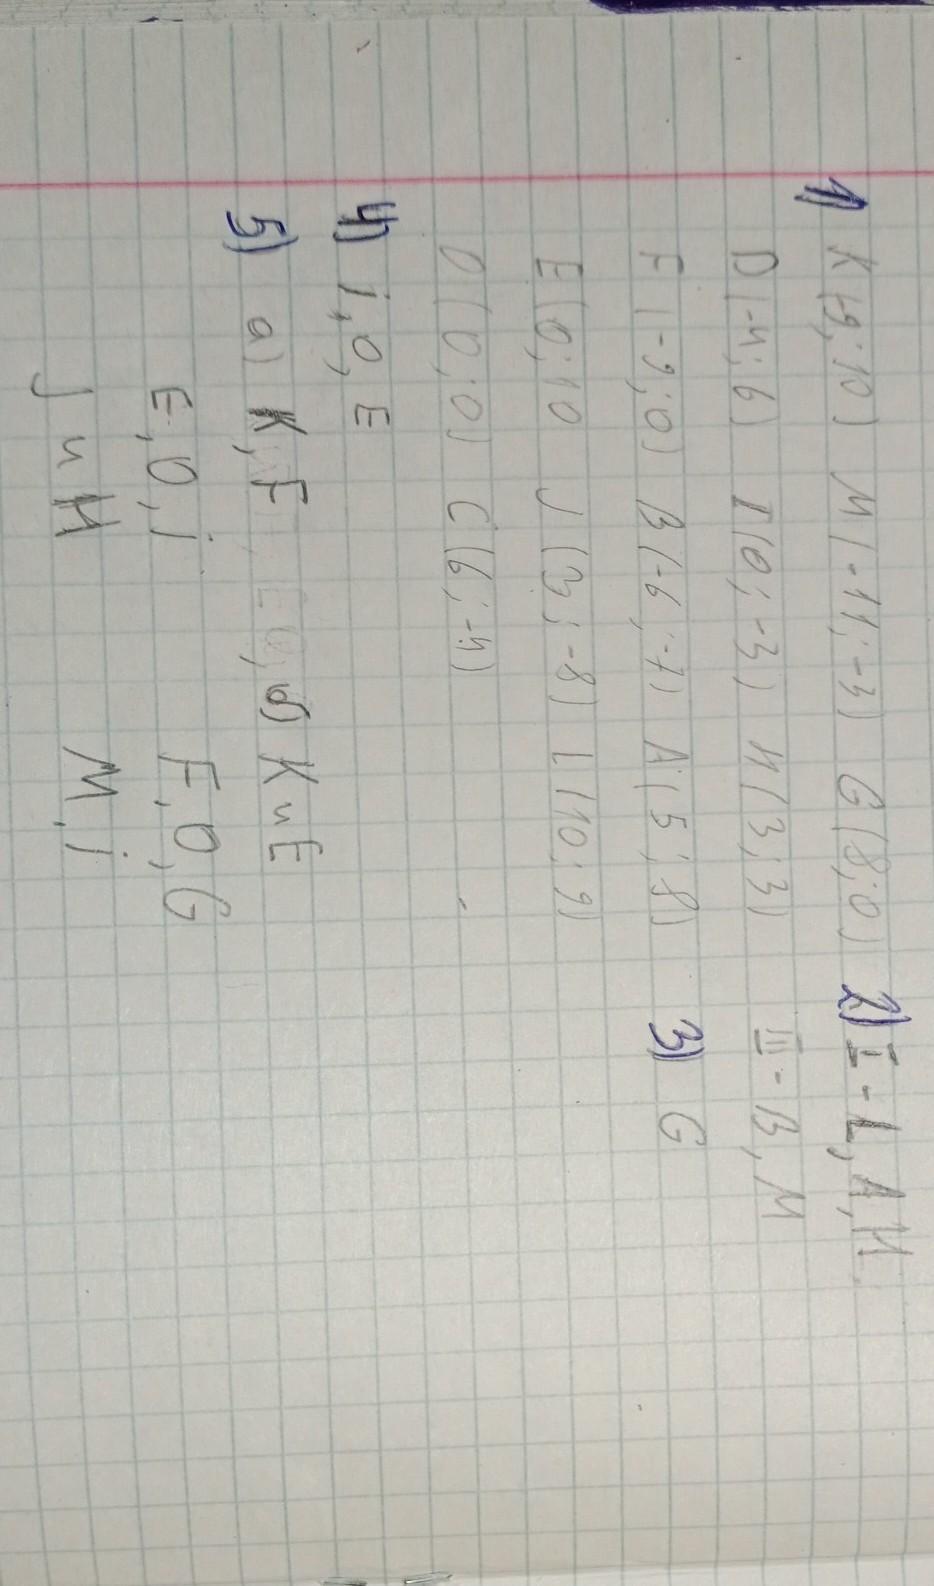 1) K(-9; 10) M(-11; -3) G(8; 0) 2) I - L, A, H
D(-4; 6) I(0; -3) H(3; 3) III - B, M
F(-9; 0) B(-6; -7) A(5; 8) 3) G
E(0; 10 J(3; -8) L(10; 9)
O(0; 0) C(6; -4)
4) i, O, E
5) a) K, F б) K и E
E, O, i F, O, G
J и H M, i